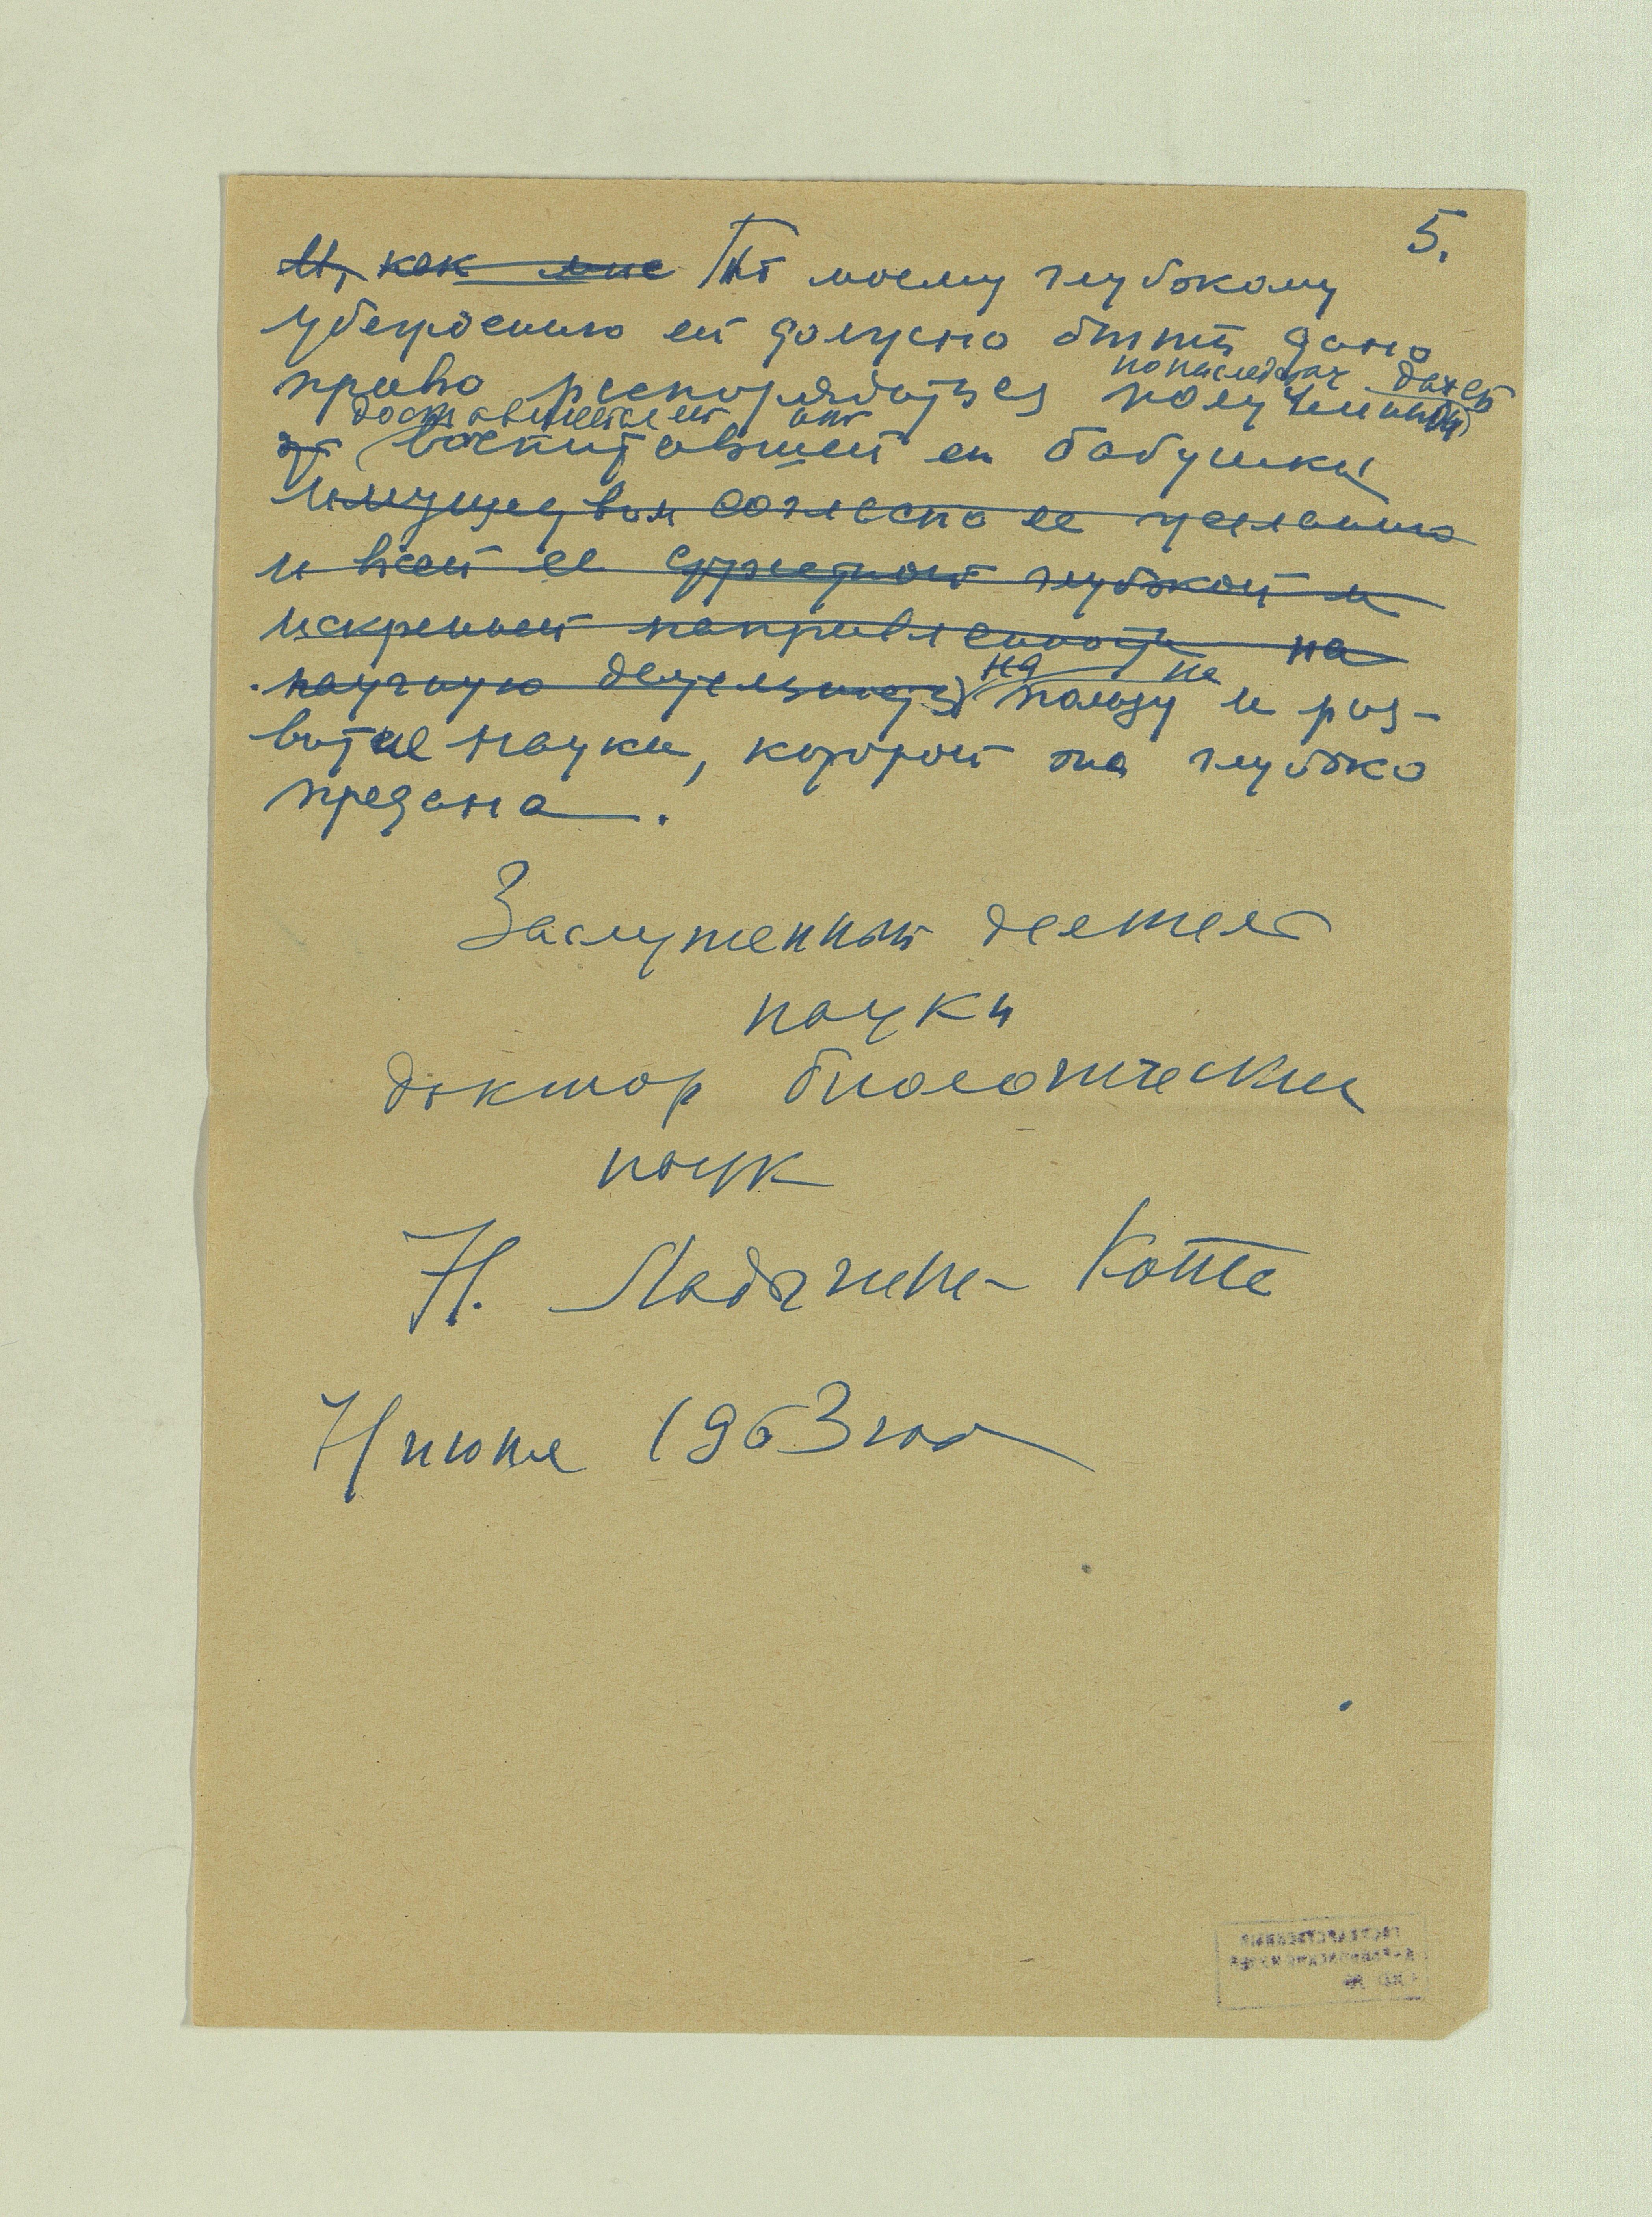 5.
И, как мне По моему глубокому
убеждению ей должно быть дано
право распоряжаться
от воспитавшей ее бабушки
имуществом согласно ее желанию
и всей ее глубокой и
искренней направленности на
научную деятельность на пользу и на раз-
витие науки, которой она глубоко
предана.
Заслуженный деятель
науки
доктор биологических
наук
Н. Ладыгина-Котс
июня 1963 года